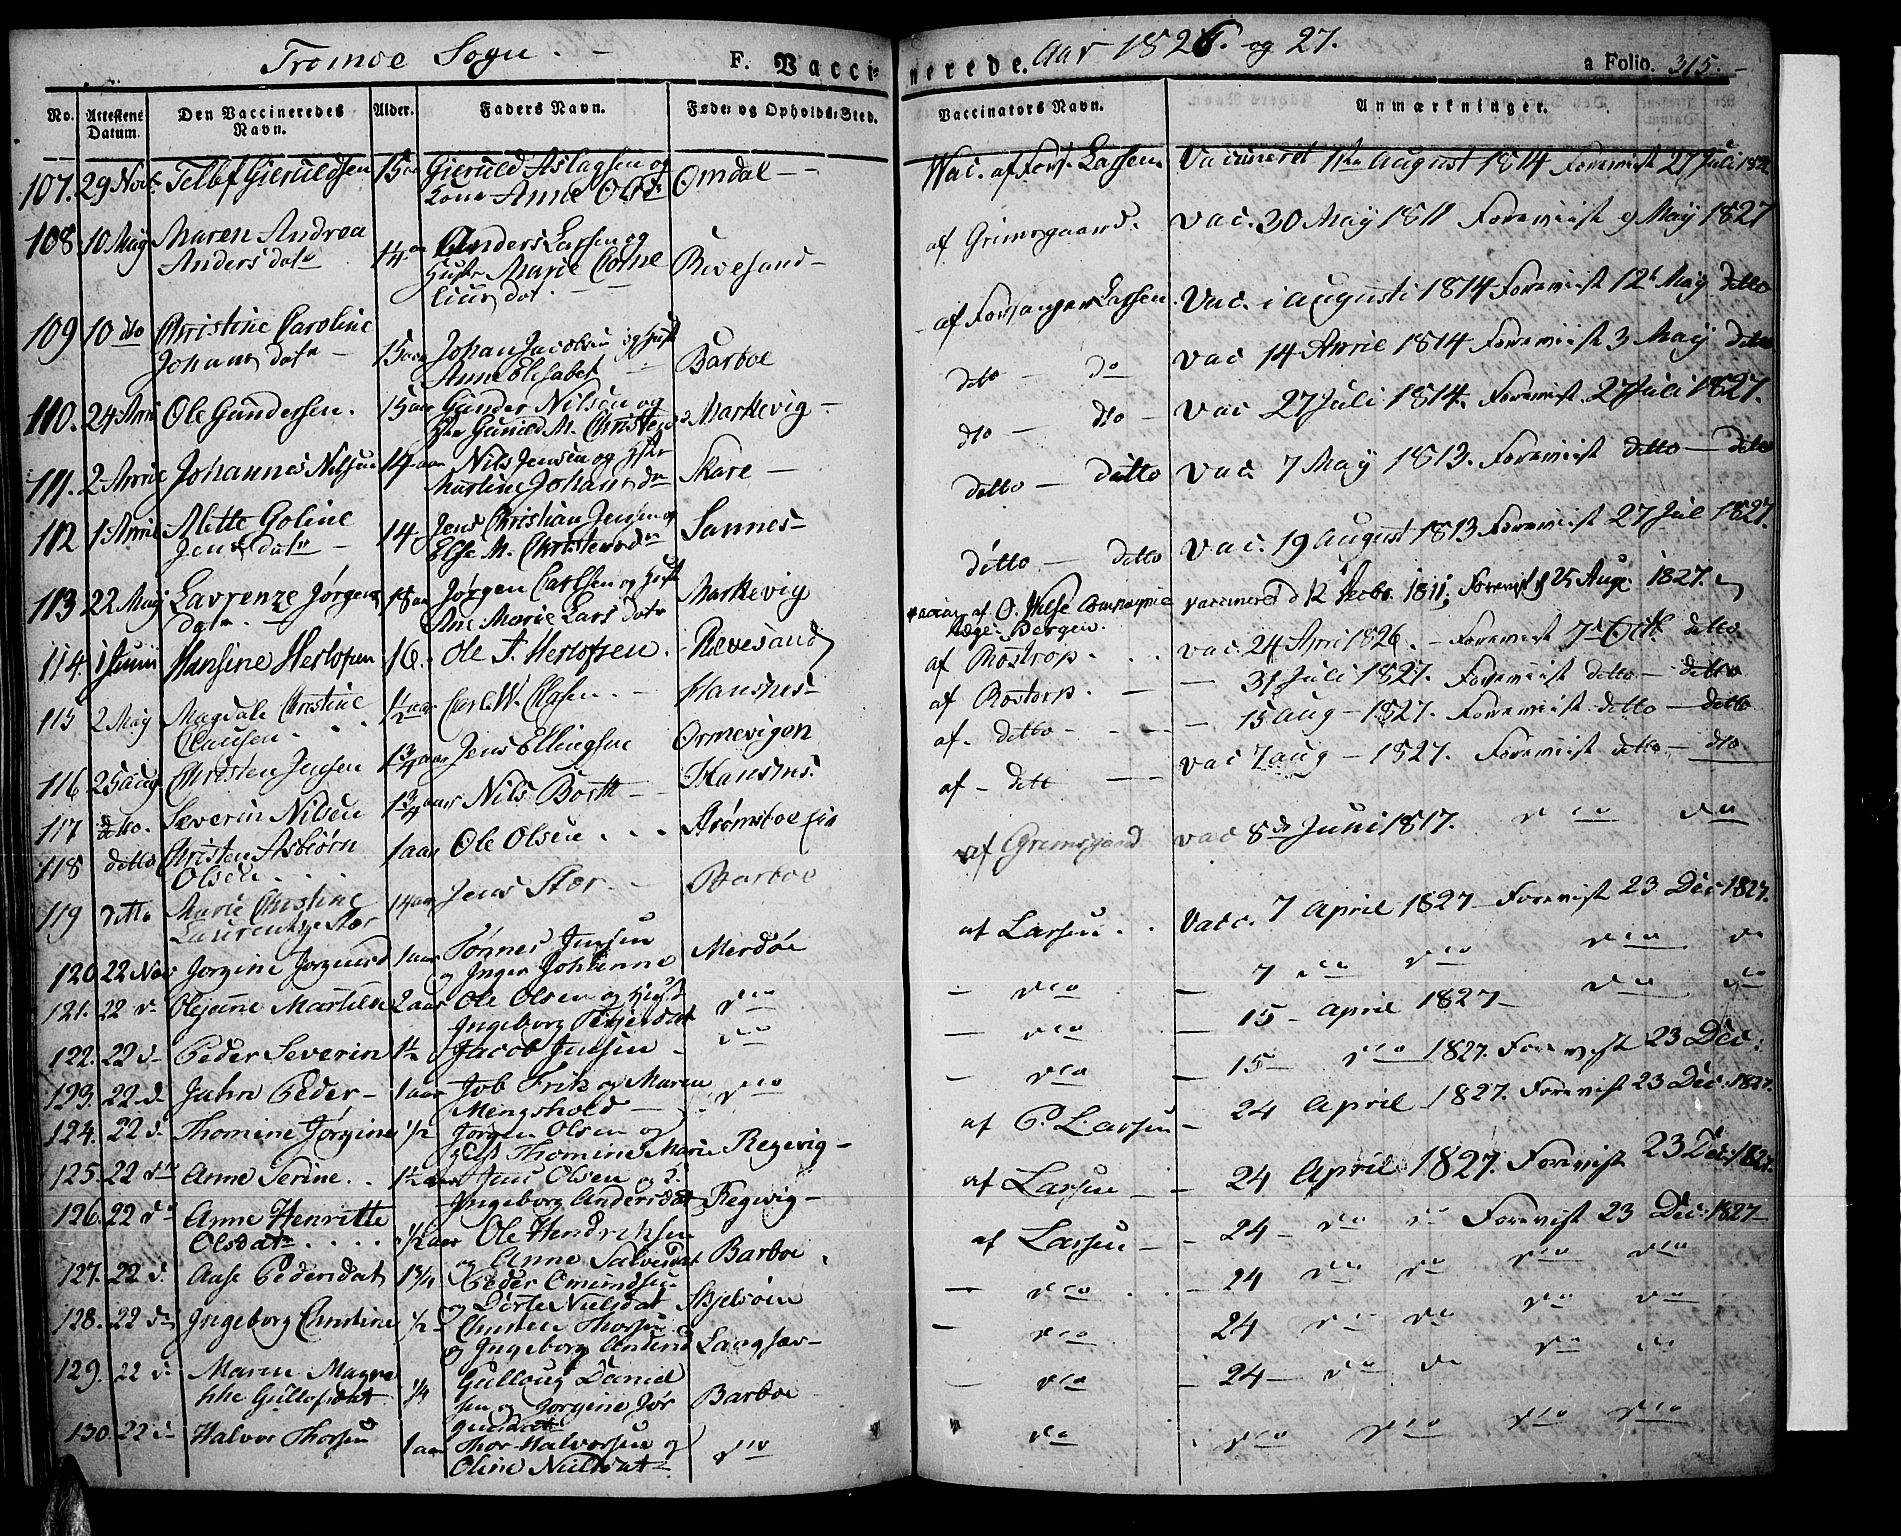 Tromøe Sogn. F. Vaccinerede. Aar 1826. og 27. a Folio. 315.
No. Attestens Datum. Den Vaccineredes Navn. Alder. Faders Navn. Føde- og Opholds-Sted. Vaccinators Navn. Anmærkninger.
107. 29 Novb. Tellef Gieruldsen 15 aar Gieruld Aslagsen og Kone Anne Olsd. Omdal Vac. af Fors. Lassen. Vaccineret August 1814 Foreviist 27 Juli
108. 10 May Maren Andrea Andersdatr 14 aar Anders Larsen og Hustr Marie Corneliusdat. Revesand af Grimsgaard. Vac. 30 May 1811 Foreviist 9 May 1827
109 10 dto Christine Caroline Johansdatr 15 aar Johan Jacobsen og Hust Anne Elisabet Barboe af Forsanger Lassen. Vac. i Augusti 1814 Foreviist 12 May ditto
110. 24 April Ole Gundersen. 15 aar Gunder Nilsen og Hstr Gunild M. Christens Markevig ditto do vac 14 April 1814 Foreviist 3 May ditto
111. 2 April Johannes Nilsen 14 aar Nils Jensen og Hstr Martine Johansdr Skare dto dto vac 27 Juli 1814. Foreviist 27 Juli 1827.
112 1 April Alette Goline Jensdatr 14 Jens Christian Jensen og Else M. Christensdr Sannes ditto ditto vac. 7 May 1813. Foreviist ditto ditto
113 22 May Lavrenze Jørgensdatr. 18 aar Jørgen Carlsen og Hust Ane Marie Larsdatr Markevig ditto ditto vac. 19 August 1813 Foreviist 27 Jul 1827.
114. 1 Junii Hansine Herlofsen 16. Ole T. Herlofsen. Revesand af O. Compagnie Læge Bergen. vaccineret d 12 1811, Foreviist d 25 Aug. 1827.
115 2 May Magdale Christine Clausen. 1½ aar Carl W. Clasen. Hansnes af Rostrop. vac. 24 April 1826. Foreviist 7 Octb. ditto
116 25 Aug Christen Jensen 1¾ aar Jens Ellingsen Ormevigen af Rostorp. 31 Juli 1827. Foreviist ditto ditto
117 ditto. Severin Nilsen 1¾ aar Nils Borth Hansnes. af ditto 15 Aug 1827. Foreviist ditto ditto
118 ditto Christen Asbiørn Olsen. 1 aar Ole Olsen Strømsboe af ditt vac 7 Aug 1827. Foreviist ditto dto
119 ditto Marie Christine 14 aar Jens Stær. Barboe af Grimsgaard vac 8de Juni 1817. dto do
120 22 Nov Jorgine Jorgensd 1 aar Tønnes Jensen og Inger Johanne Merdøe af Larsen Vacc. 7 April 1827 Forevist 23 Dec. 1827.
121. 22 do Olejane Martilie 2 aar Ole Olsen og Hust Ingeborg Terjesdat dto dto 7 dto dto dto do
122. 22 d Peder Severin 1½ Jacob Jensen dto dto 15 April 1827 do do
123. 22 d. Jahn Peder 1 aar Job Frik og Maren Mengshold dto dto 15 dto 1827. Forevist 23 Dec:
124. 22 d. Thomine Jørgine ½ Jørgen Olsen og Hust Thomine Marie Regevig af P. Larsen 24 April 1827. Forevist 23 Dec. 1827.
125. 22 do Anne Serine. 1½ aar Jens Olsen og H. Ingeborg Andersdat Regevig af Larsen 24 April 1827. Forevist 23 Dec: 1827.
126. 22 do Anne Henritte Olsdatr ½ aar Ole Hendriksen og Anne Salvesdat Barboe af Larsen 24 do do Forevist 23 Dec. 1827
127. 22 d. Aase Pedersdat 1¾ Peder Omundsen og Dorte Nielsdat Skjelsøen dto 24 do do dto do
128. 22 do Ingeborg Christine ½ Christen Thorsen og Ingeborg Andersd Langsæv dto 24 do do do do
129. 22 d. Maren Magrethe Gullofsdat ¼ Gulloug Danielsen og Jorgine Jørgensdat Barboe dto 24 do do do do
130. 22 d. Halvor Thorsen 1 aar Thor Halvorsen og Oline Nielsdat dto dto dto dto dto dto